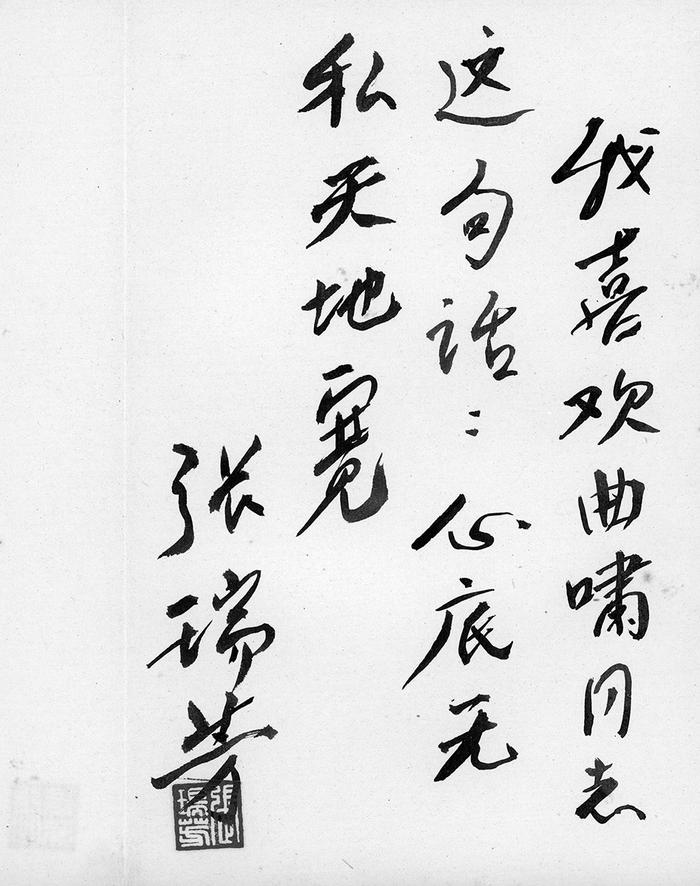 我喜欢曲啸同志
这句话：心底无
私天地宽
张瑞芳